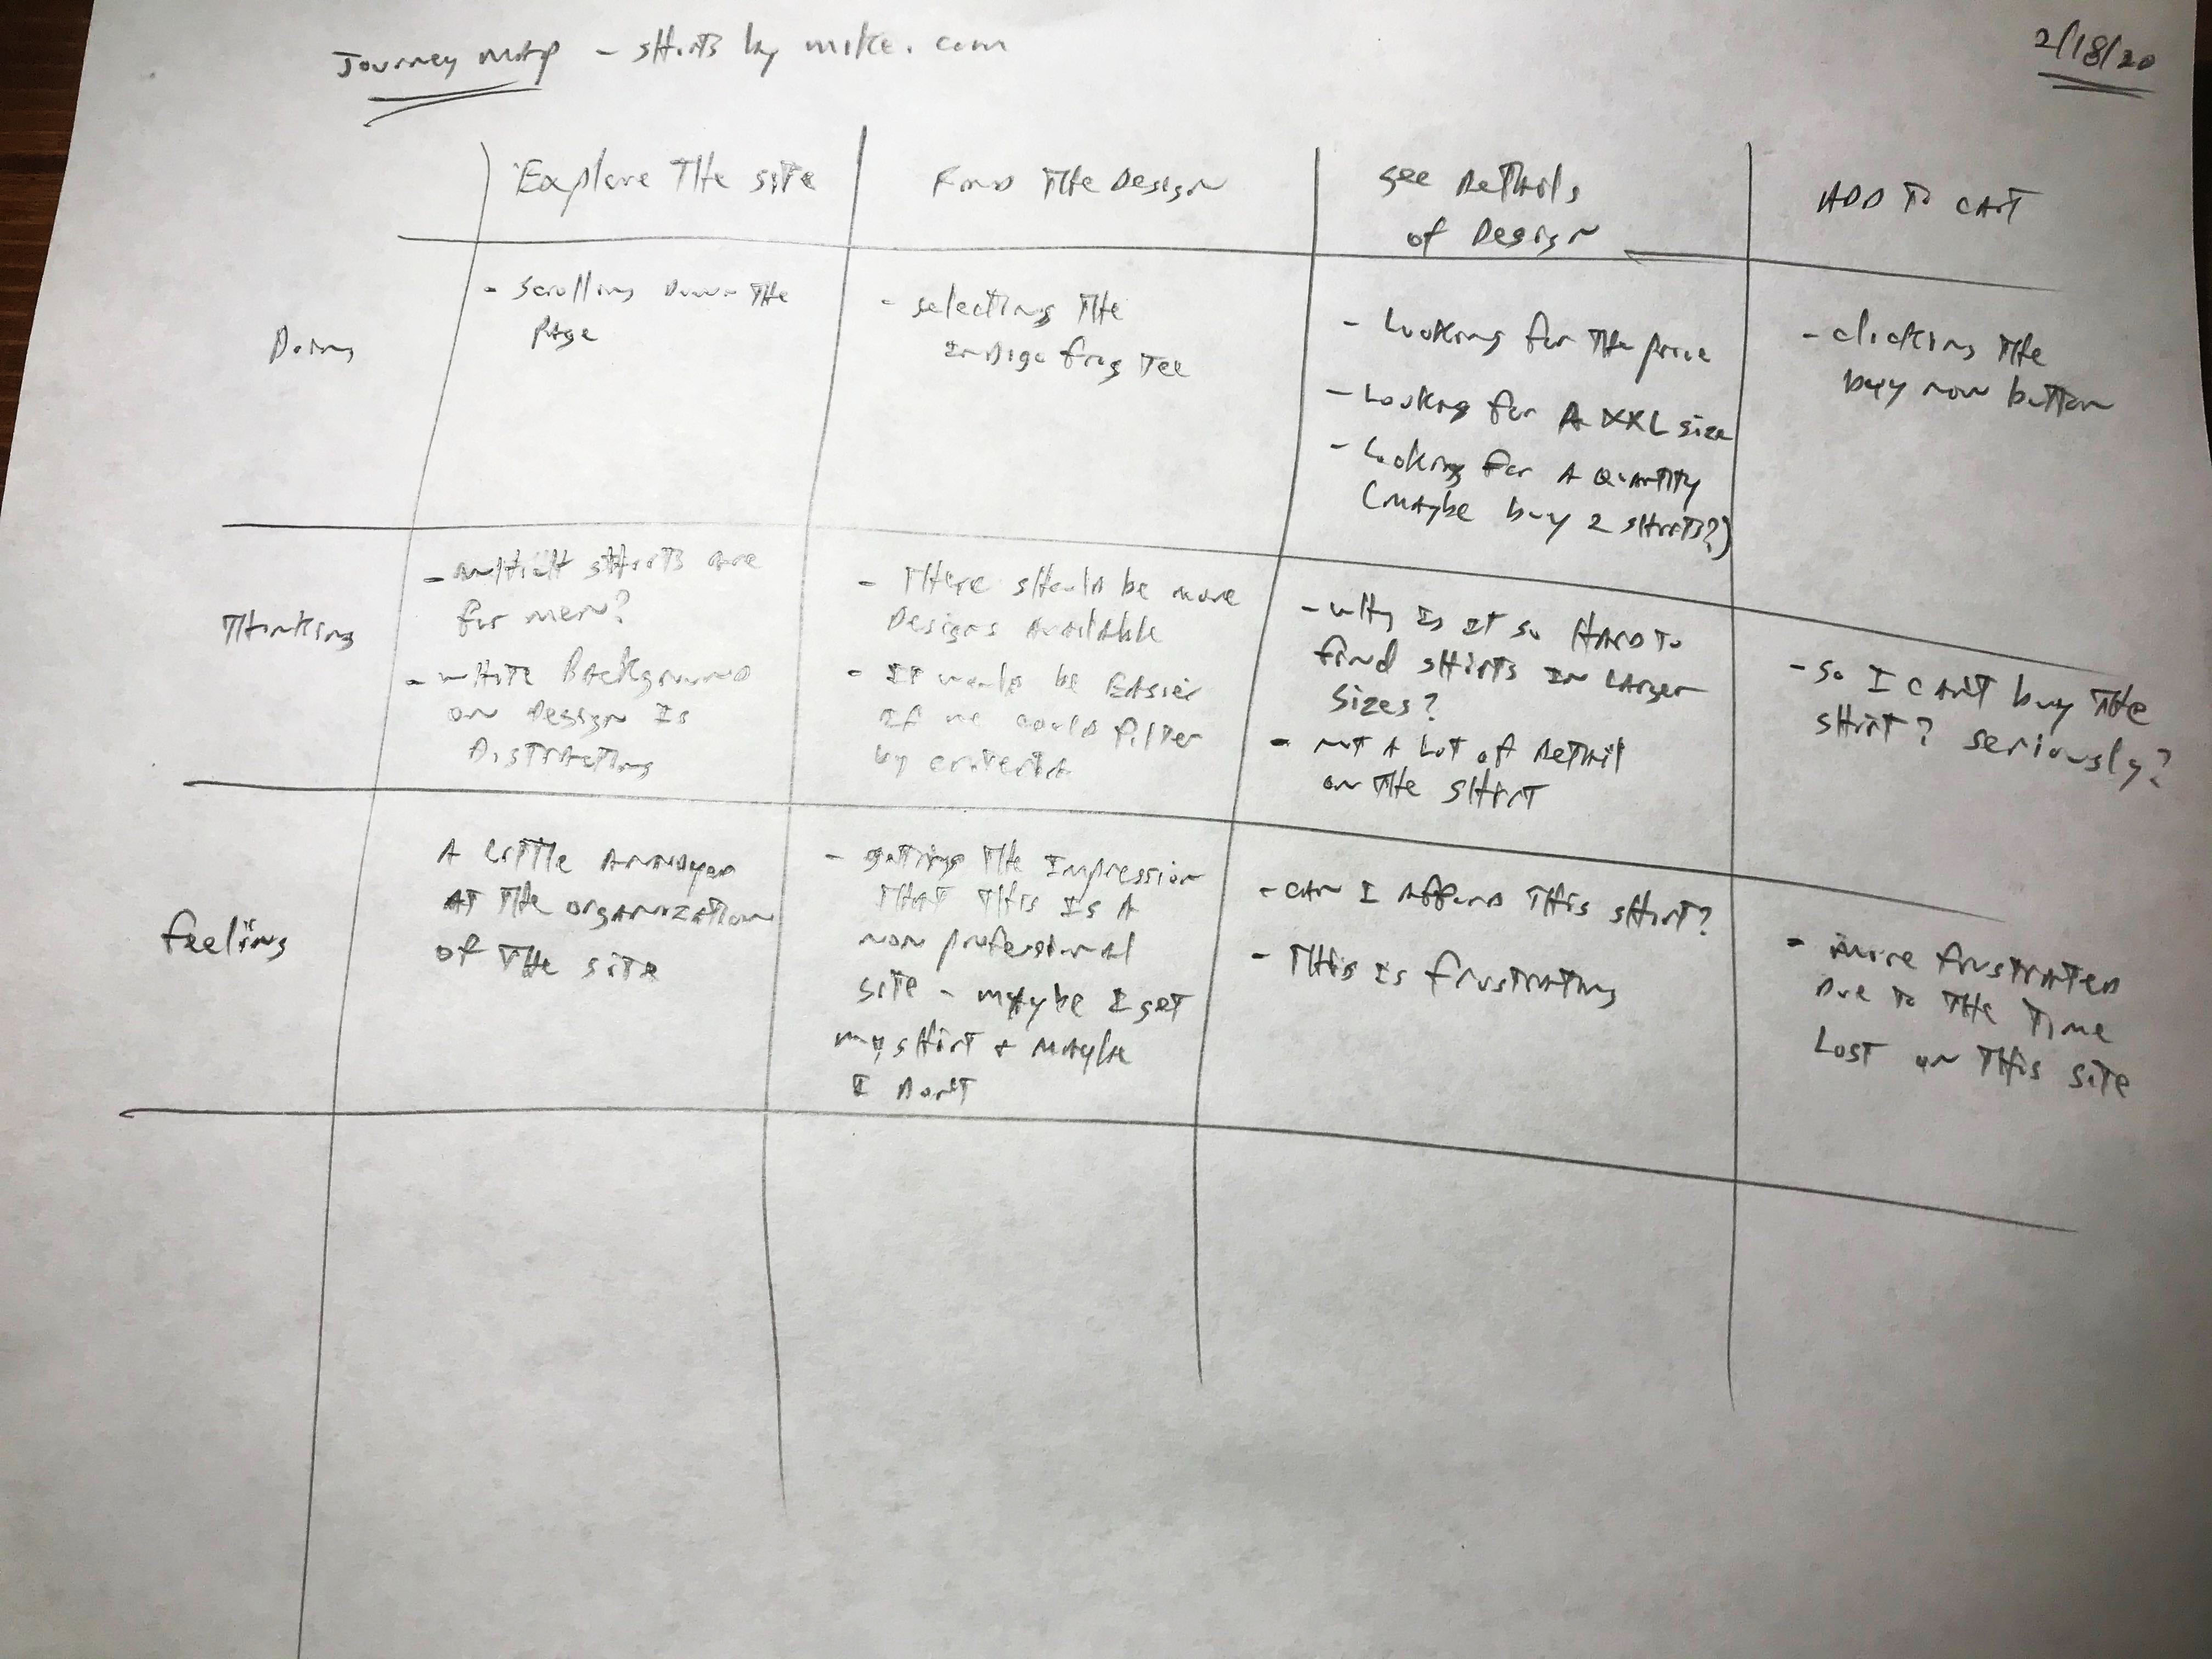 Journey Map - shirts by mike.com
2/18/20
Explore The site
Find The Design
See Details
of Design
ADD To CART
Doing
- Scrolling Down The
Page
- selecting The
Indigo frog Tee
- Looking for The price
- Looking for A XXL size
- Looking for A Quantity
(Maybe buy 2 shirts?)
- clicking The
buy now button
Thinking
- which shirts are
for men?
- white Background
on Design Is
Distracting
- There should be more
Designs Available
- It would be Easier
If we could filter
by criteria
- why Is It so Hard To
find shirts In Larger
Sizes?
- not A Lot of Detail
on The Shirt
- So I can't buy The
shirt? seriously?
feelings
A Little Annoyed
AT The organization
of The site
- getting The Impression
That This Is A
non professional
site - maybe I get
my shirt + maybe
I Don't
- can I Afford This shirt?
- This Is frustrating
- more frustrated
Due To The Time
Lost on This site